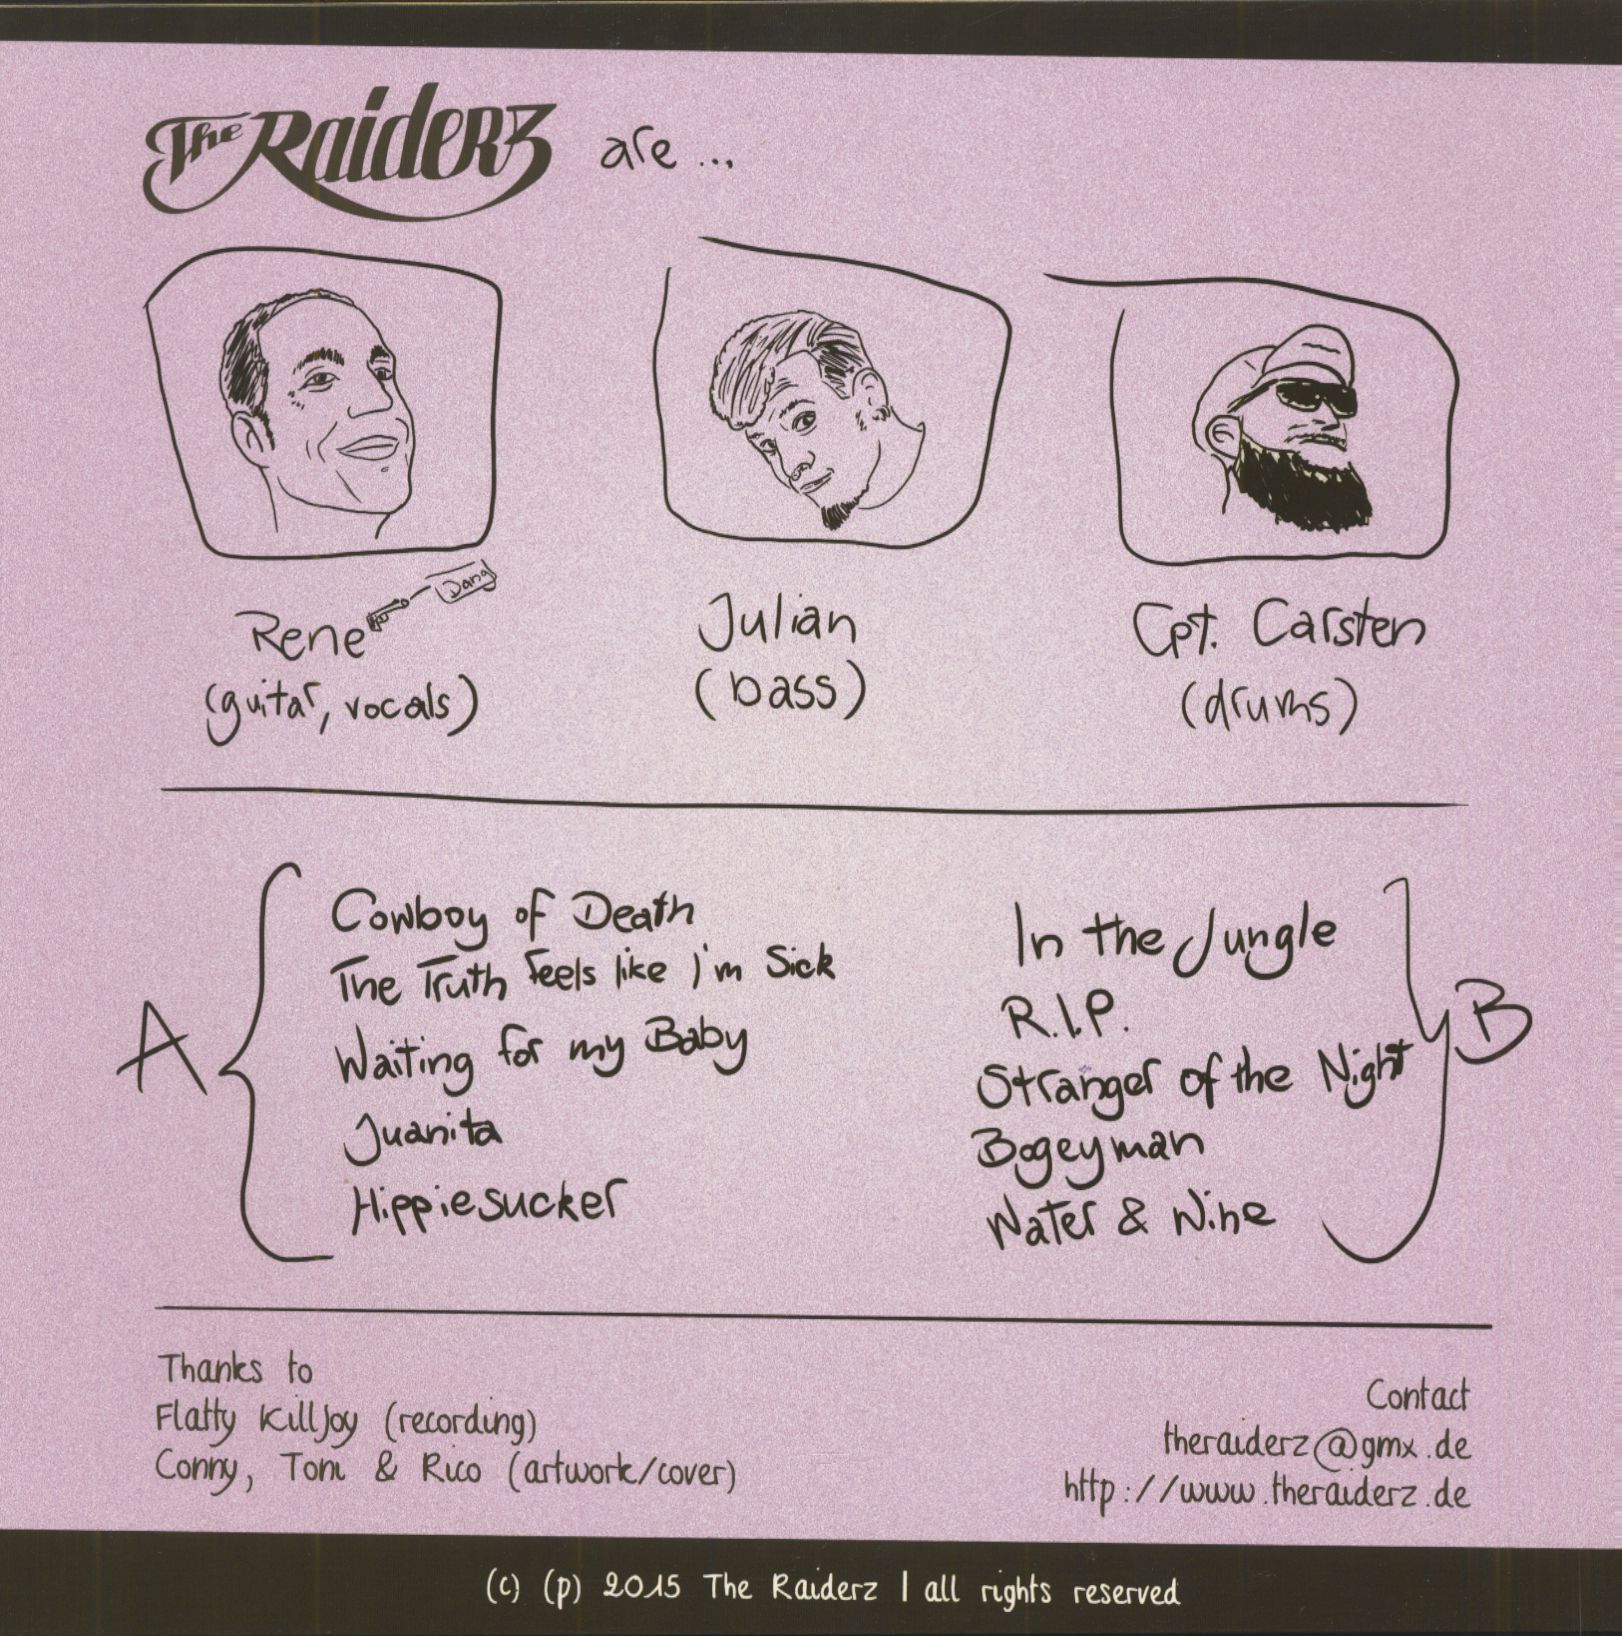 The Raiderz are ...
Dang
Rene
Julian
Cpt. Carsten
(guitar, vocals)
(bass)
(drums)
A
Cowboy of Death
The Truth feels like I'm Sick
Waiting for my Baby
Juanita
Hippiesucker
In the Jungle
R.I.P.
Stranger of the Night
Bogeyman
Water & Wine
B
Thanks to
Flatty KillJoy (recording)
Conny, Tom & Rico (artwork/cover)
Contact
theraiderz@gmx.de
http://www.theraiderz.de
(c) (p) 2015 The Raiderz | all rights reserved